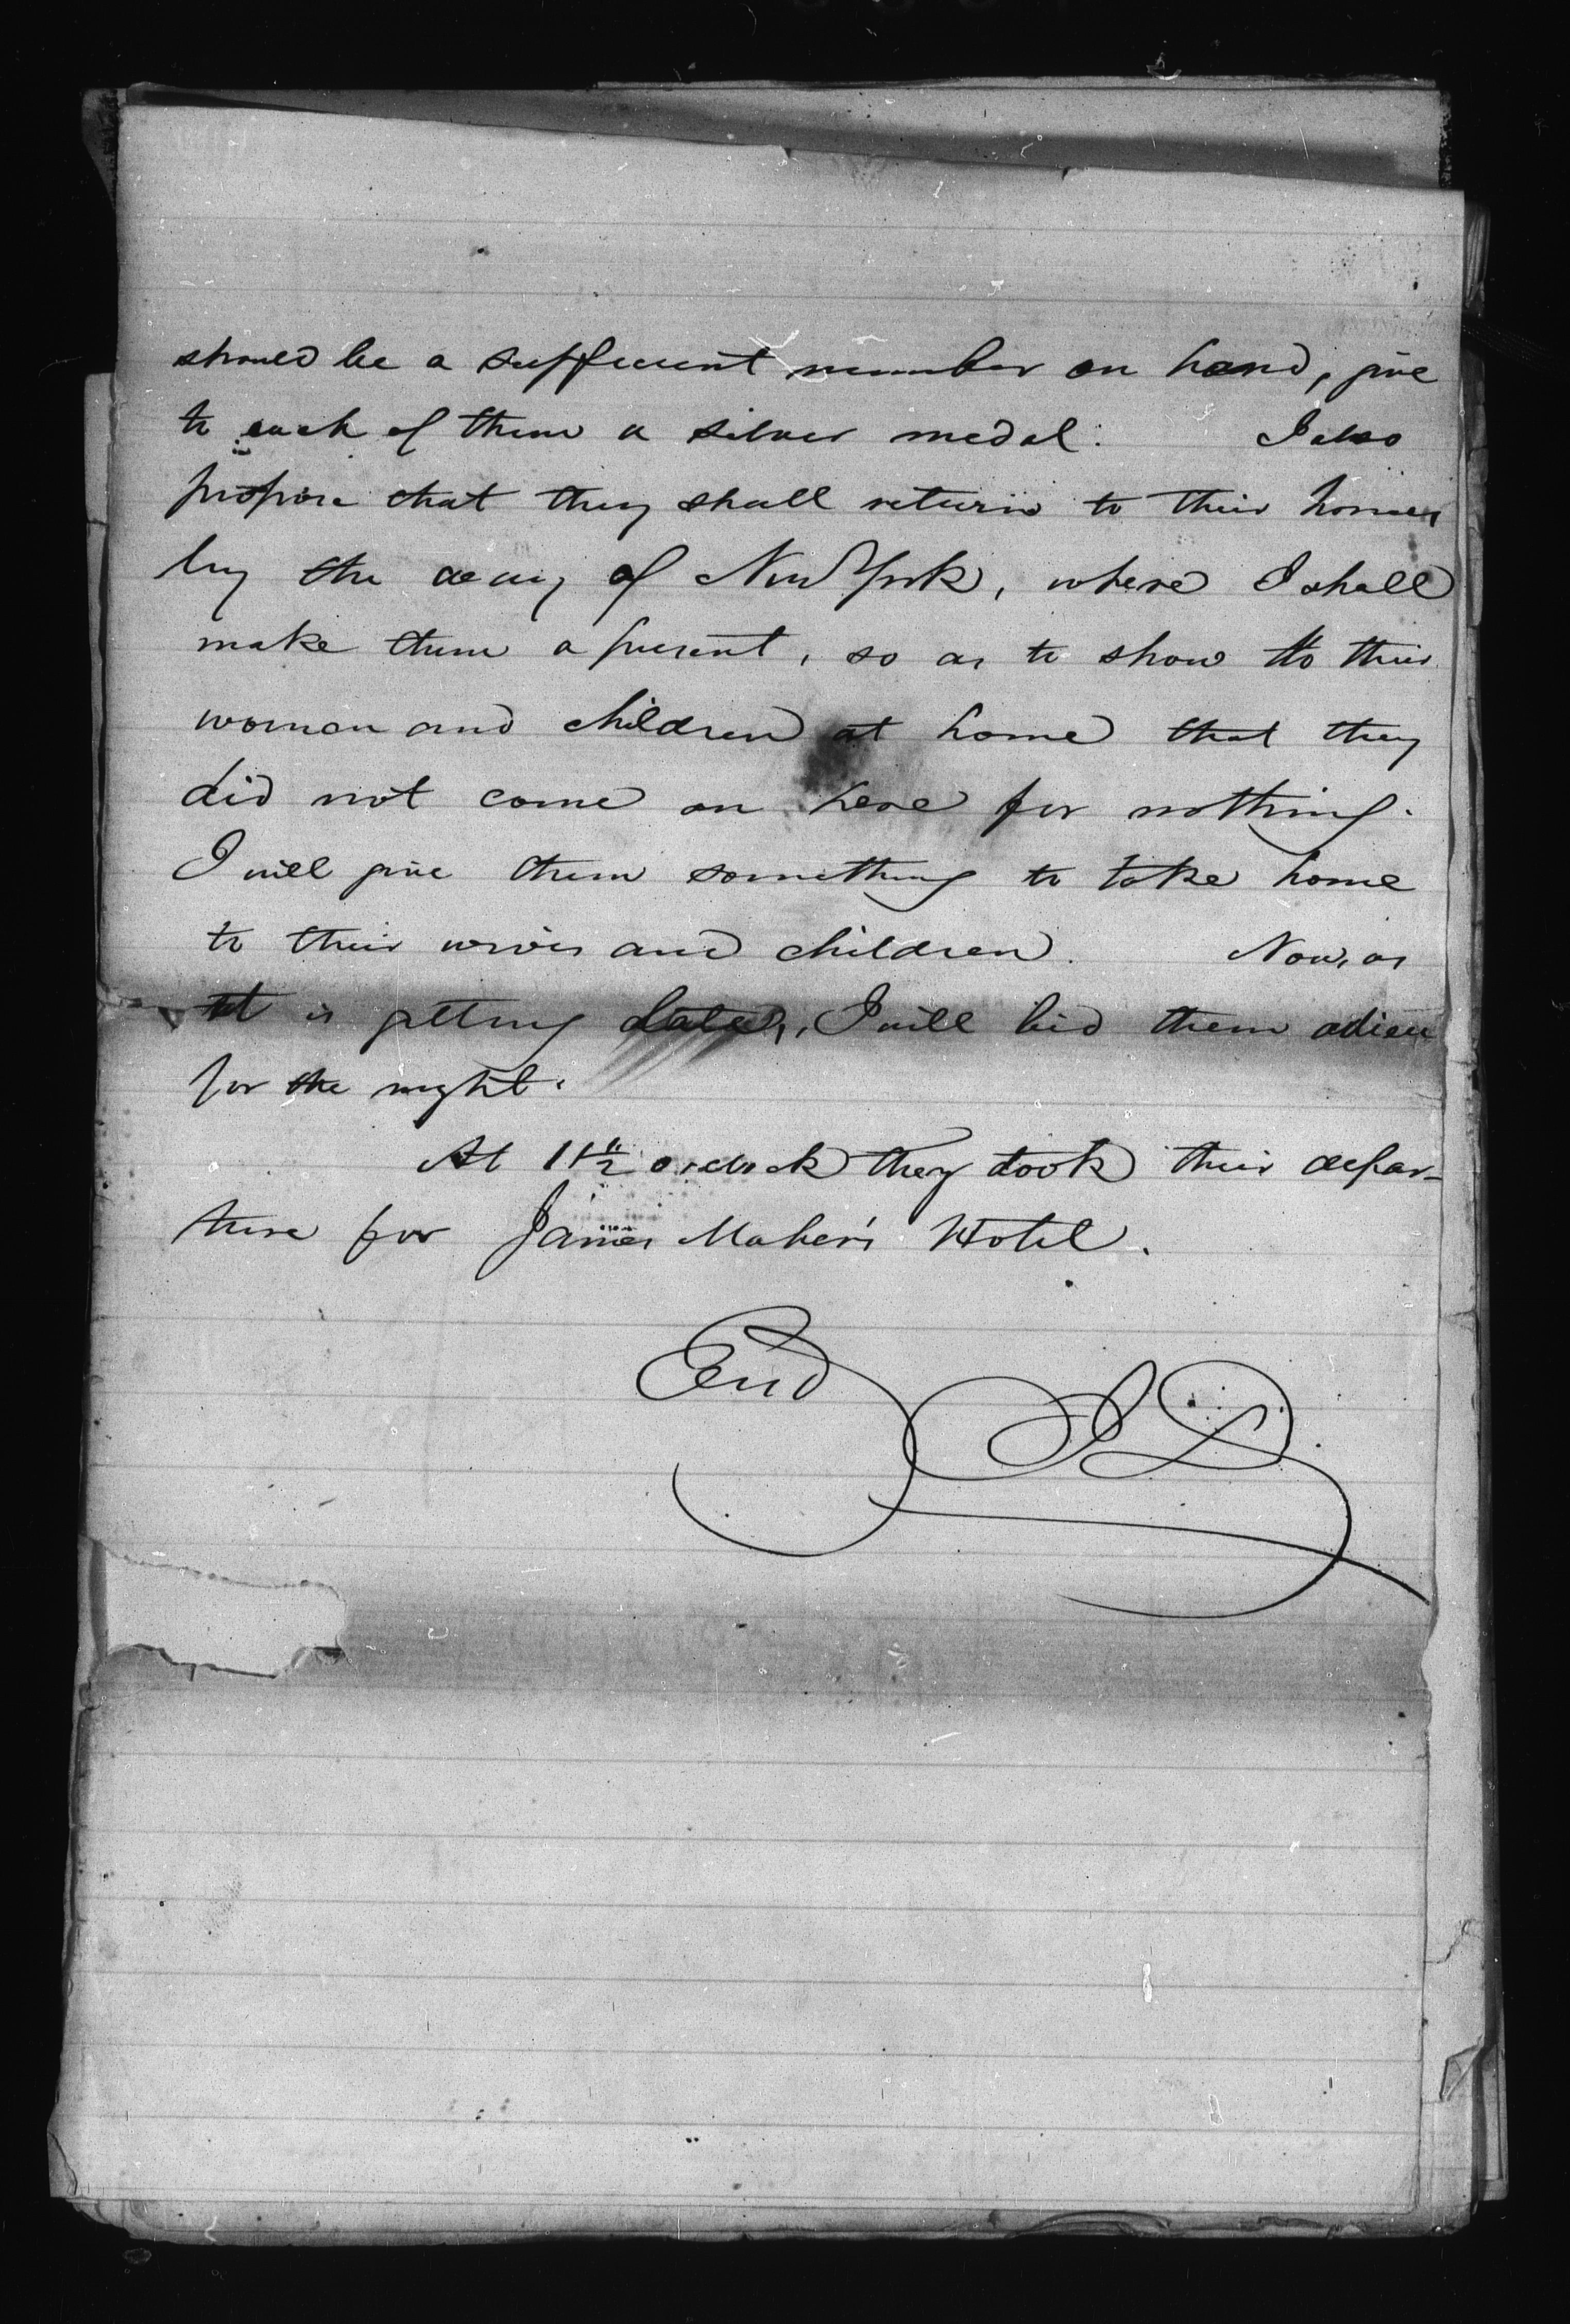 should be a sufficient number on hand, give
to each of them a silver medal. I also
propose that they shall return to their homes
by the way of New York, where I shall
make them a present, so as to show to their
women and children at home that they
did not come on here for nothing.
I will give them something to take home
to their wives and children. Now, as
it is getting late, I will bid them adieu
for the night.
At 11 1/2 o'clock they took their depar-
ture for James Maher's Hotel.
End